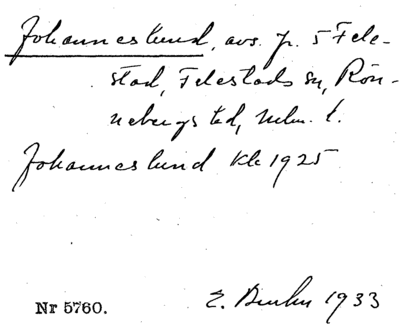 Johanneslund, avs. fr. 5 Fele-
stad, Felestads sn, Rön-
nebergs hd, Mlm. l.
Johanneslund Kk 1925
Nr 5760. E. 1933